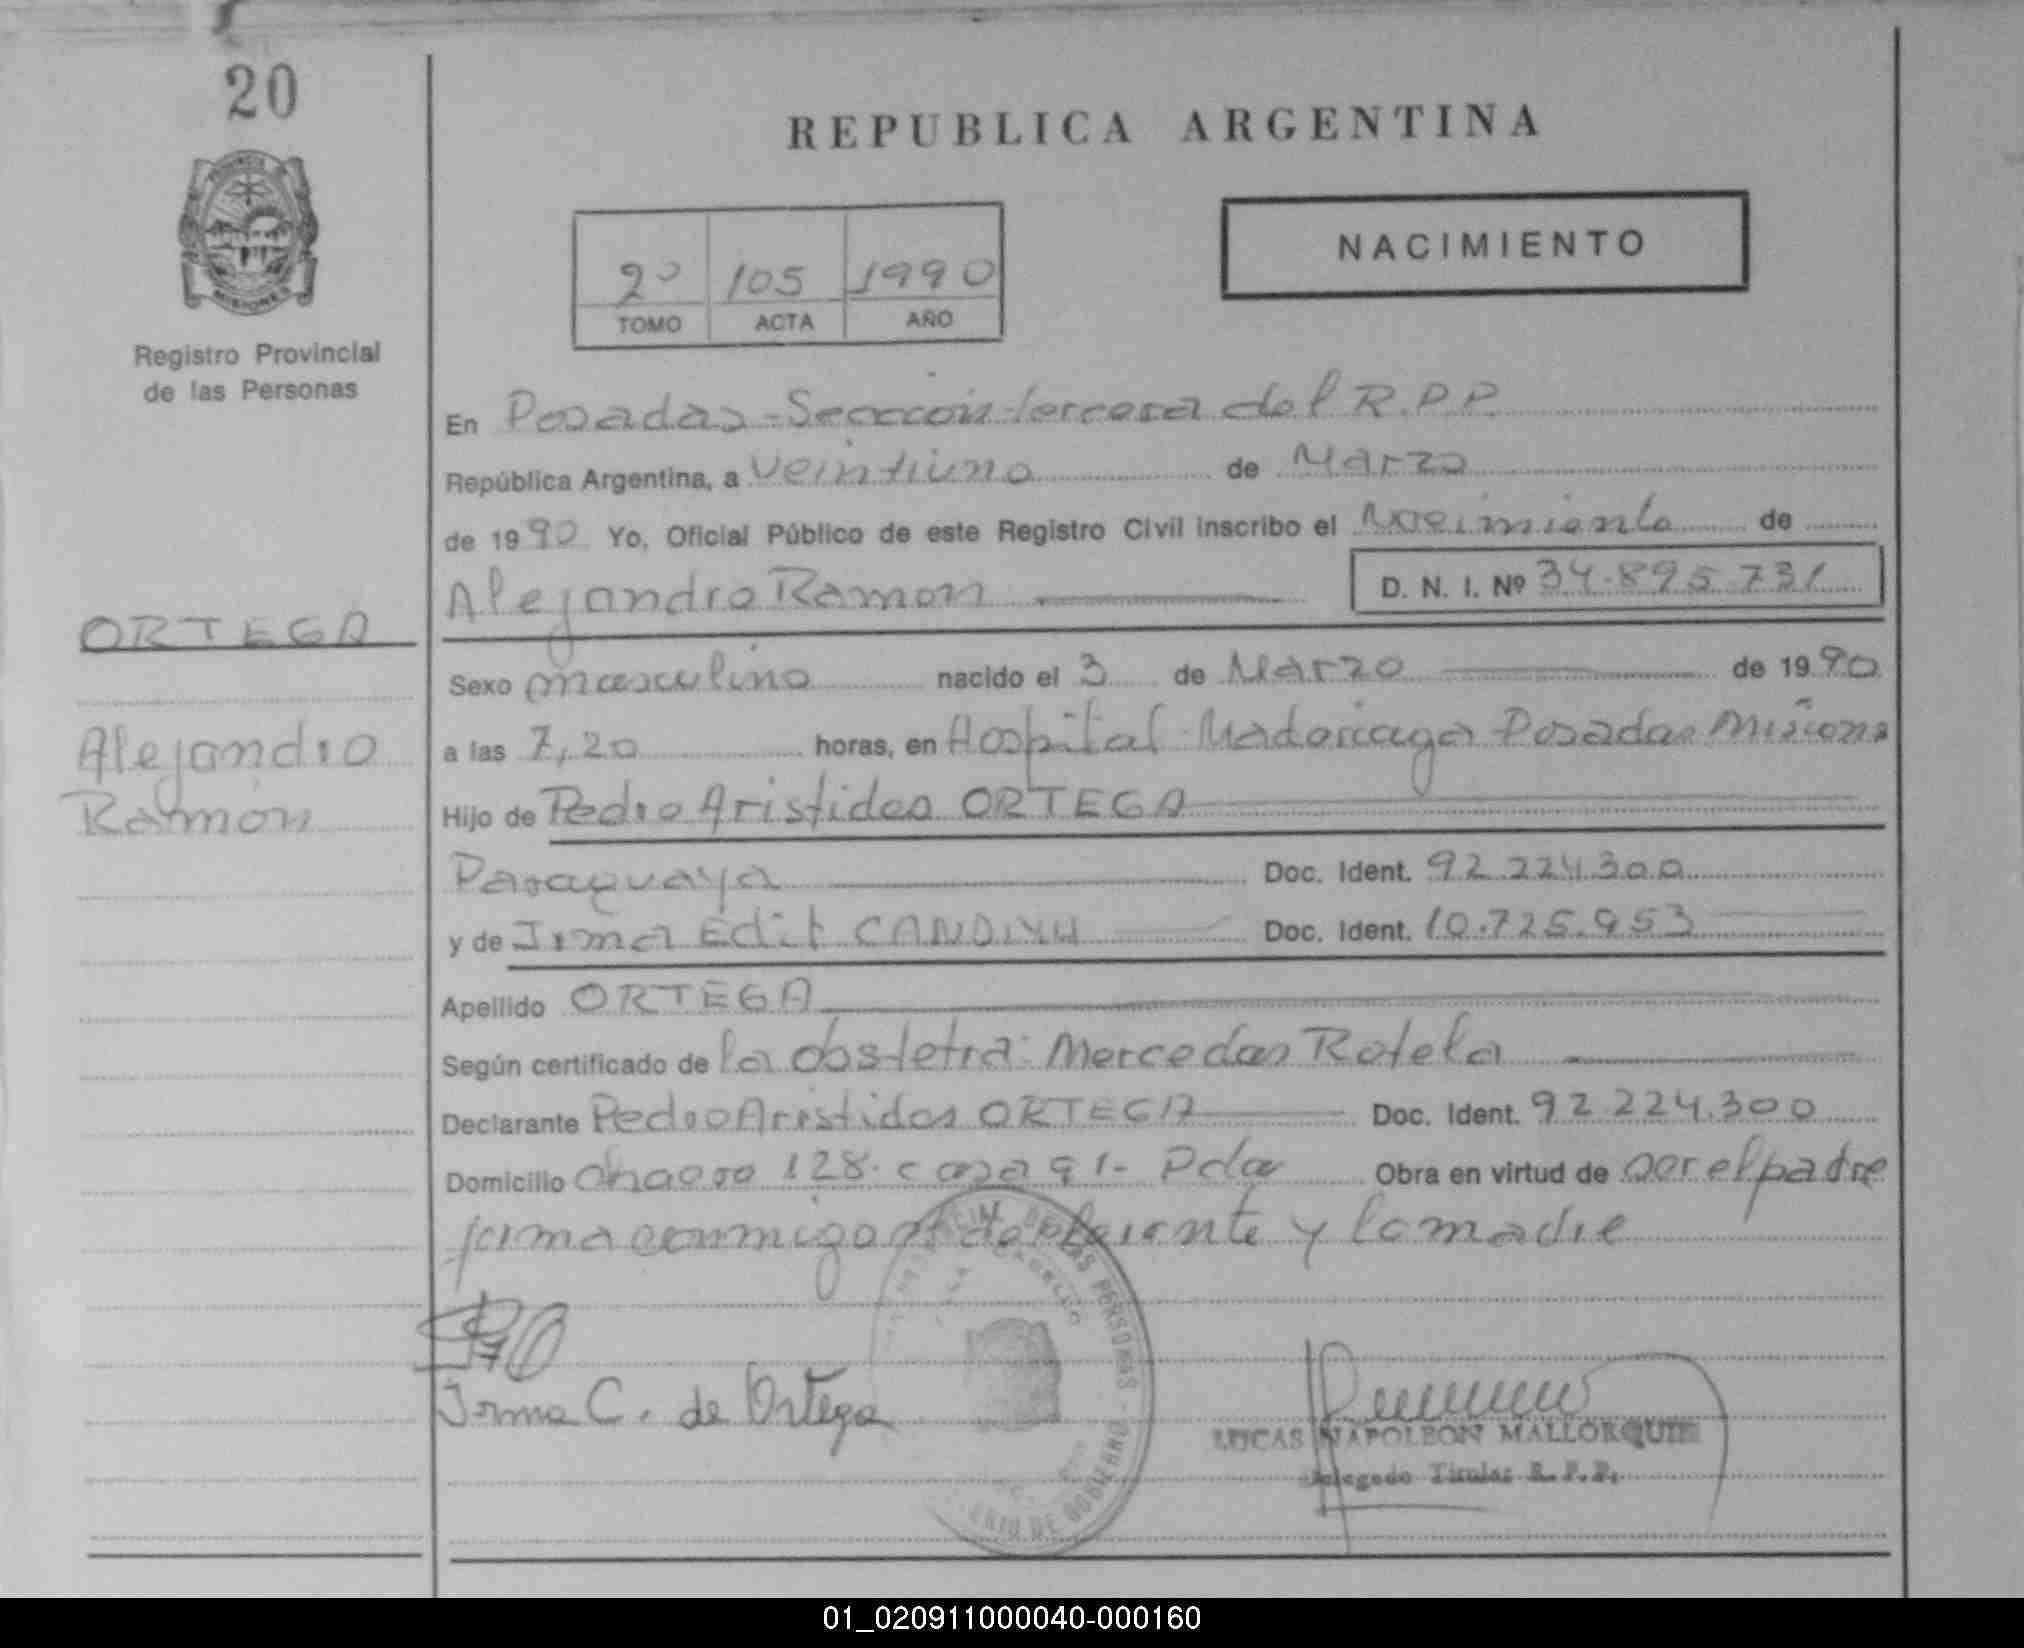 20
REPUBLICA ARGENTINA
PROVINCIA
MISIONES
Registro Provincial
de las Personas
NACIMIENTO
2º 105 1990
TOMO ACTA AÑO
En Posadas - Sección tercera del R.P.P.
República Argentina, a veintiuno de Marzo
de 1990 Yo, Oficial Público de este Registro Civil inscribo el Nacimiento de
Alejandro Ramon D. N. I. Nº 34.895.731
ORTEGA
Alejandro
Ramón
Sexo masculino nacido el 3 de Marzo de 1990
a las 7,20 horas, en Hospital Madariaga Posadas Misiones
Hijo de Pedro Aristides ORTEGA
Paraguaya Doc. Ident. 92.224.300
y de Irma Edit Doc. Ident. 10.725.953
Apellido ORTEGA
Según certificado de la obstetra: Mercedes Rotela
Declarante Pedro Aristides ORTEGA Doc. Ident. 92.224.300
Domicilio chacra 128. casa 91- Pdas Obra en virtud de ser el padre
firma conmigo el declarante y la madre
Irma C. de Ortega
DE LAS PERSONAS
DE GOBIERNO
LUCAS NAPOLEON MALLORQUIN
Delegado Titular R. P. P.
01_020911000040-000160